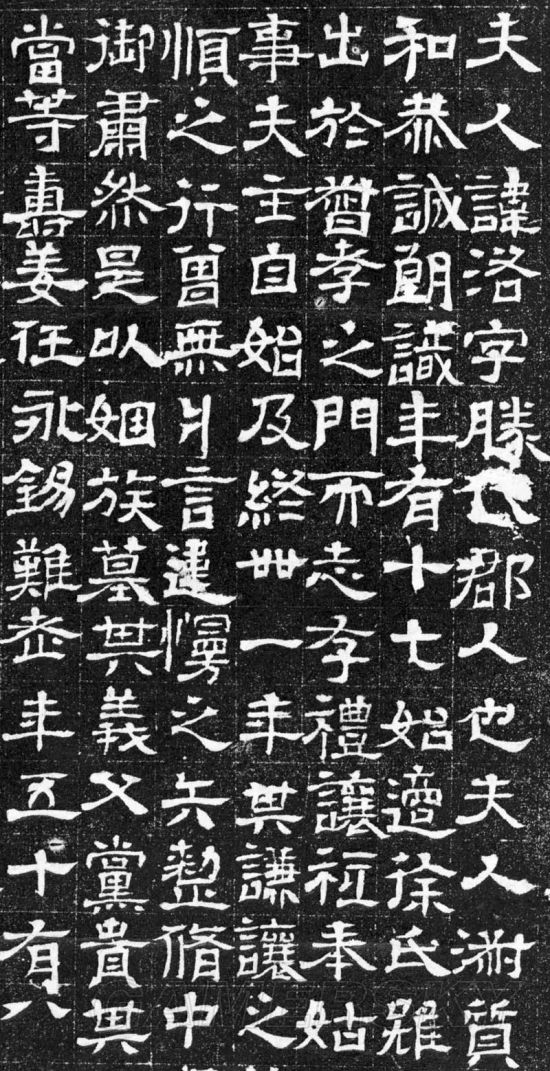 夫人諱洛字勝代郡人也夫人淑質
和恭誠朗識年有十七始適徐氏雖
出於孝之門而志存禮讓祗奉姑
事夫主自始及終卅一年其謙讓之
順之行曾無片言違慢之失整脩中
御肅然是以姻族墓其義父黨貴其
當等壽姜任永錫難老年五十有八